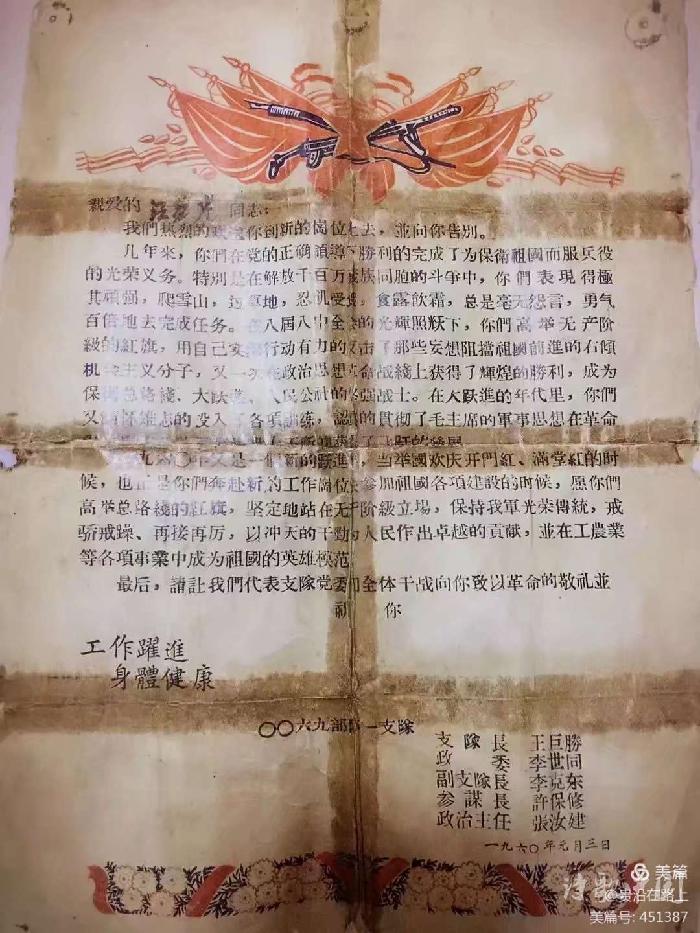 親爱的 同志:
我們热烈的 你到新的崗位 去，並向你告別。
几年来，你們在党的正确領導下勝利的完成了为保衛祖國而服兵役
的光荣义务。特別是在解放千百万 族同胞的斗争中，你們表現得極
其頑强，爬雪山，过草地，忍飢受 ，食露飲霜，总是毫无怨言，勇气
百倍地去完成任务。在八届八中全会的光輝照 下，你們高举无产阶
級的紅旗，用自己实 行动有力的 击了那些妄想阻擋祖國前進的右傾
机会主义分子，又一次在政治思想 战綫上获得了輝煌的勝利，成为
保衛总路綫、大跃進、人民公社的坚强战士。在大跃進的年代里，你們
又 怀雄志的投入了各項訓練，認真的貫彻了毛主席的軍事思想在革命
一九六〇年又是一個新的跃進年，当举國欢庆开門紅、滿堂紅的时
候，也正是你們奔赴新的工作崗位去参加祖國各項建設的时候，愿你們
高举总路綫的紅旗，坚定地站在无产阶級立場，保持我軍光荣傳統，戒
骄戒躁、再接再厉，以冲天的干勁为人民作出卓越的貢献，並在工農業
等各項事業中成为祖國的英雄模范。
最后，請让我們代表支隊党委和全体干战向你致以革命的敬礼並
祝 你
工作躍進
身體健康
〇〇六九部隊一支隊
支隊長 王巨勝
政委 李世同
副支隊長 李克东
参謀長 許保修
政治主任 張汝建
一九六〇年元月三日
美篇
@贵沿在路上
美篇号: 451387